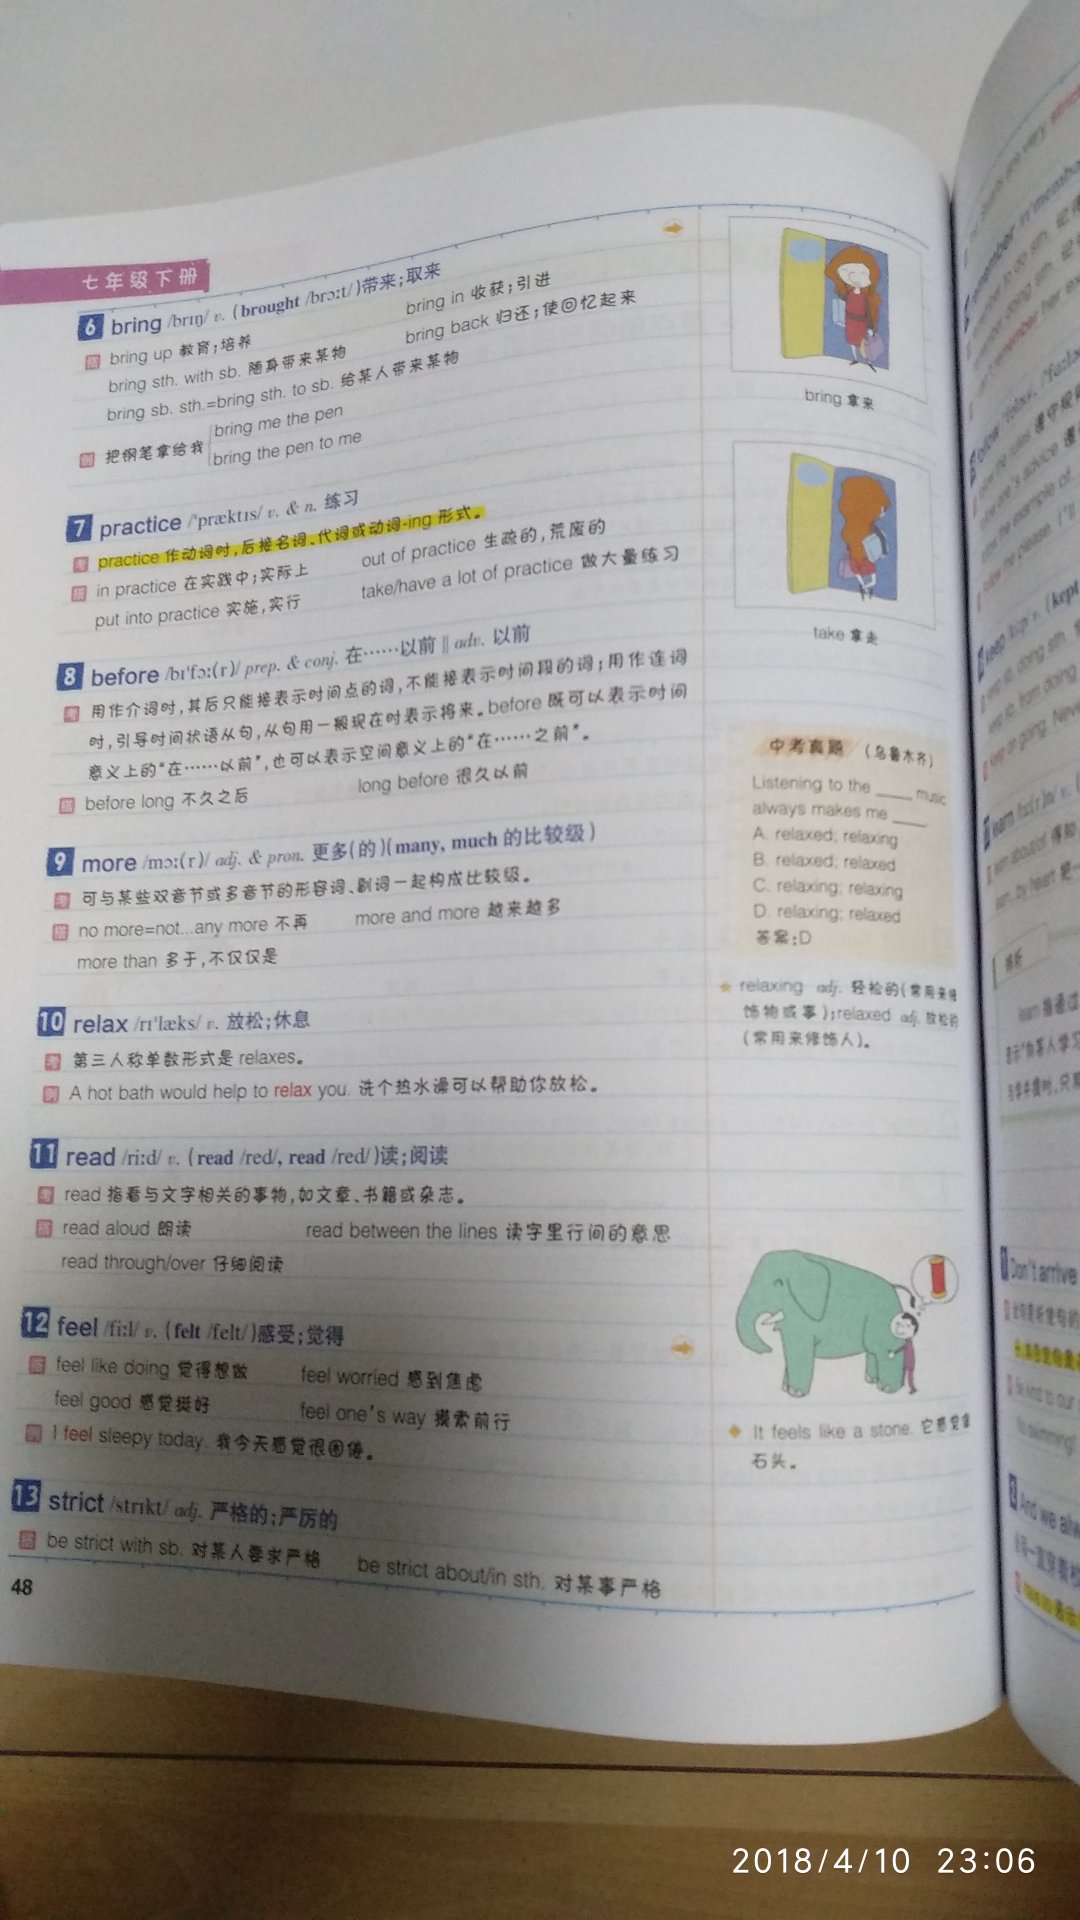 七年级下册
6 bring /brɪŋ/ v. (brought /brɔːt/)带来;取来
搭 bring up 教育;培养 bring in 收获;引进
bring sth. with sb. 随身带来某物 bring back 归还;使回忆起来
bring sb. sth.=bring sth. to sb. 给某人带来某物
例 把钢笔拿给我
bring me the pen
bring the pen to me
7 practice /'præktɪs/ v. & n. 练习
考 practice 作动词时,后接名词、代词或动词-ing 形式。
搭 in practice 在实践中;实际上 out of practice 生疏的,荒废的
put into practice 实施,实行 take/have a lot of practice 做大量练习
8 before /bɪ'fɔː(r)/ prep. & conj. 在……以前 ‖ adv. 以前
考 用作介词时,其后只能接表示时间点的词,不能接表示时间段的词;用作连词
时,引导时间状语从句,从句用一般现在时表示将来。before 既可以表示时间
意义上的“在……以前”,也可以表示空间意义上的“在……之前”。
搭 before long 不久之后 long before 很久以前
9 more /mɔː(r)/ adj. & pron. 更多(的)(many, much 的比较级)
考 可与某些双音节或多音节的形容词、副词一起构成比较级。
搭 no more=not...any more 不再 more and more 越来越多
more than 多于,不仅仅是
10 relax /rɪ'læks/ v. 放松;休息
考 第三人称单数形式是 relaxes。
例 A hot bath would help to relax you. 洗个热水澡可以帮助你放松。
11 read /riːd/ v. (read /red/, read /red/)读;阅读
考 read 指看与文字相关的事物,如文章、书籍或杂志。
搭 read aloud 朗读 read between the lines 读字里行间的意思
read through/over 仔细阅读
12 feel /fiːl/ v. (felt /felt/)感受;觉得
搭 feel like doing 觉得想做 feel worried 感到焦虑
feel good 感觉挺好 feel one's way 摸索前行
例 I feel sleepy today. 我今天感觉很困倦。
13 strict /strɪkt/ adj. 严格的;严厉的
搭 be strict with sb. 对某人要求严格 be strict about/in sth. 对某事严格
48
bring 拿来
take 拿走
中考真题 (乌鲁木齐)
Listening to the ____ music
always makes me ____.
A. relaxed; relaxing
B. relaxed; relaxed
C. relaxing; relaxing
D. relaxing; relaxed
答案:D
relaxing adj. 轻松的(常用来修
饰物或事);relaxed adj. 放松的
(常用来修饰人)。
It feels like a stone. 它感觉像
石头。
Don't arrive
2018/4/10 23:06